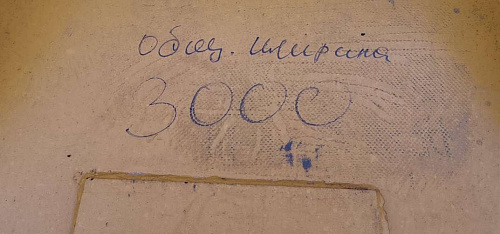 Общ. ширина
3000